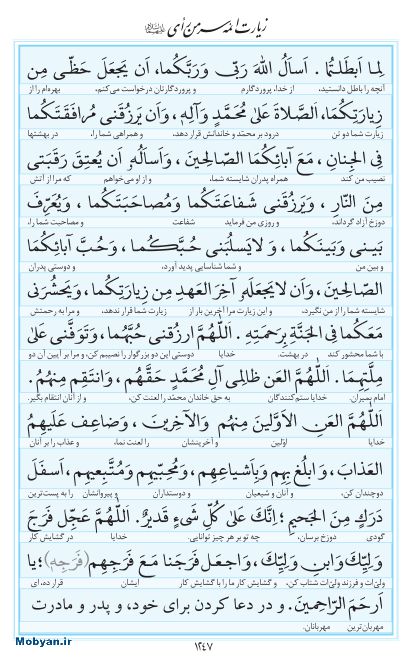 زیارت ائمه سرمن رأی علیهم السلام
لِما اَبطَلتُما . اَسأَلُ اللهَ رَبّی وَ رَبَّکُما، اَن یَجعَلَ حَظّی مِن
آنچه را باطل دانستید، از خدا، پروردگارم و پروردگارتان درخواست می‌کنم، بهره‌ام را از
زِیارَتِکُمَا، الصَّلاةَ عَلیٰ مُحَمَّدٍ وَ آلِهِ، وَ اَن یَرزُقَنی مُرافَقَتَکُما
زیارت شما دو تن درود بر محمد و خاندانش قرار دهد، و همراهی شما را، در بهشتها
فِی الجِنانِ، مَعَ آبائِکُمَا الصّالِحینَ، وَ اَسأَلُهُ اَن یُعتِقَ رَقَبَتی
نصیب من کند همراه پدران شایسته شما، و از او می‌خواهم که مرا از آتش
مِنَ النّارِ، وَ یَرزُقَنی شَفاعَتَکُما وَ مُصاحَبَتَکُما، وَ یُعَرِّفَ
دوزخ آزاد گرداند، و روزی من فرماید شفاعت و مصاحبت شما را،
بَینی وَ بَینَکُما، وَ لا یَسلُبَنی حُبَّکُما، وَ حُبَّ آبائِکُمَا
و بین من و شما شناسایی پدید آورد، و دوستی پدران
الصّالِحینَ، وَ اَن لا یَجعَلَهُ آخِرَ العَهدِ مِن زِیارَتِکُما، وَ یَحشُرَنی
شایسته شما را از من نگیرد، و این زیارت مرا آخرین بار از زیارت شما قرار ندهد، و مرا به رحمتش
مَعَکُما فِی الجَنَّةِ بِرَحمَتِهِ. اَللّٰهُمَّ ارزُقنی حُبَّهُما، وَ تَوَفَّنی عَلیٰ
با شما محشور کند در بهشت. خدایا دوستی این دو بزرگوار را نصیبم کن، و مرا بر آیین آن دو
مِلَّتِهِما. اَللّٰهُمَّ العَن ظالِمی آلِ مُحَمَّدٍ حَقَّهُم، وَ انتَقِم مِنهُم.
امام بمیران. خدایا ستم‌کنندگان به حق خاندان محمد را لعنت کن، و از آنان انتقام بگیر.
اَللّٰهُمَّ العَنِ الاَوَّلینَ مِنهُم وَ الآخِرینَ، وَ ضاعِف عَلَیهِمُ
خدایا اوّلین و آخرینشان را لعنت نما، و عذاب را بر آنان
العَذابَ، وَ ابلُغ بِهِم وَ بِاَشیاعِهِم، وَ مُحِبّیهِم وَ مُتَّبِعیهِم، اَسفَلَ
دوچندان کن، و آنان و شیعیان و دوستداران و پیروانشان را به پست‌ترین
دَرَکٍ مِنَ الجَحیمِ؛ اِنَّکَ عَلیٰ کُلِّ شَیءٍ قَدیرٌ. اَللّٰهُمَّ عَجِّل فَرَجَ
گودی دوزخ برسان، چه تو بر هر چیز توانایی. خدایا در گشایش کار
وَلِیِّکَ وَ ابنِ وَلِیِّکَ، وَ اجعَل فَرَجَنا مَعَ فَرَجِهِم (فَرَجِهِ)؛ یا
ولیّ‌ات و فرزند ولیّ‌ات شتاب کن، و گشایش کار ما را با گشایش کار ایشان قرار ده، ای
اَرحَمَ الرّاحِمینَ. و در دعا کردن برای خود، و پدر و مادرت
مهربان‌ترین مهربانان.
۱۲۴۷
Mobyan.ir